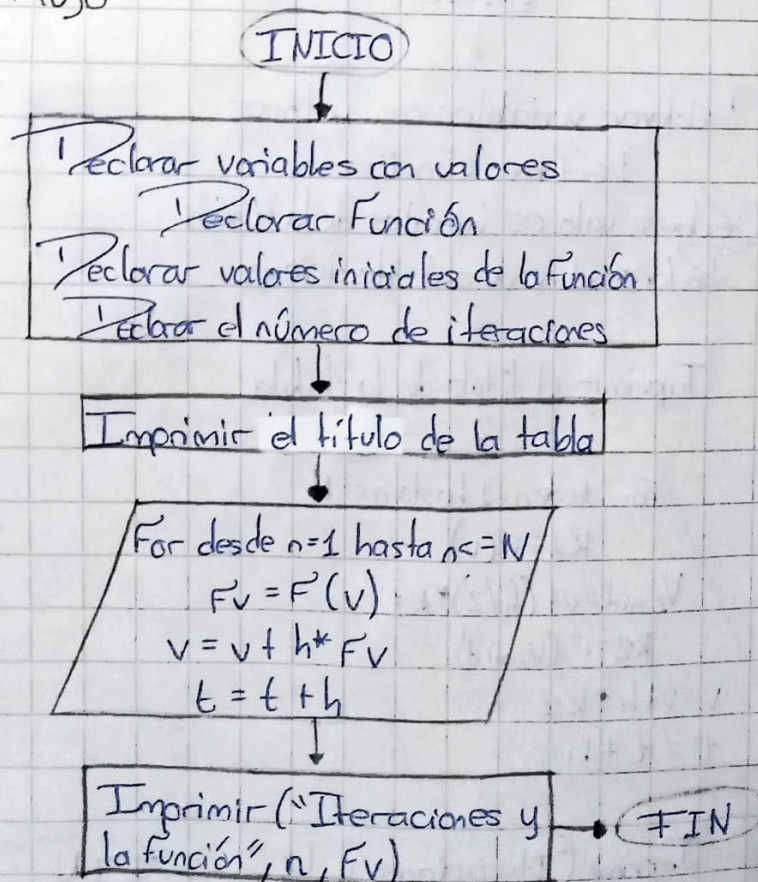 INICIO
Declarar variables con valores
Declarar Función
Declarar valores iniciales de la Función
Declarar el número de iteraciones
Imprimir el título de la tabla
For desde n=1 hasta n<=N
Fv = F(v)
v = v + h* Fv
t = t + h
Imprimir ("Iteraciones y
la función", n, Fv)
FIN